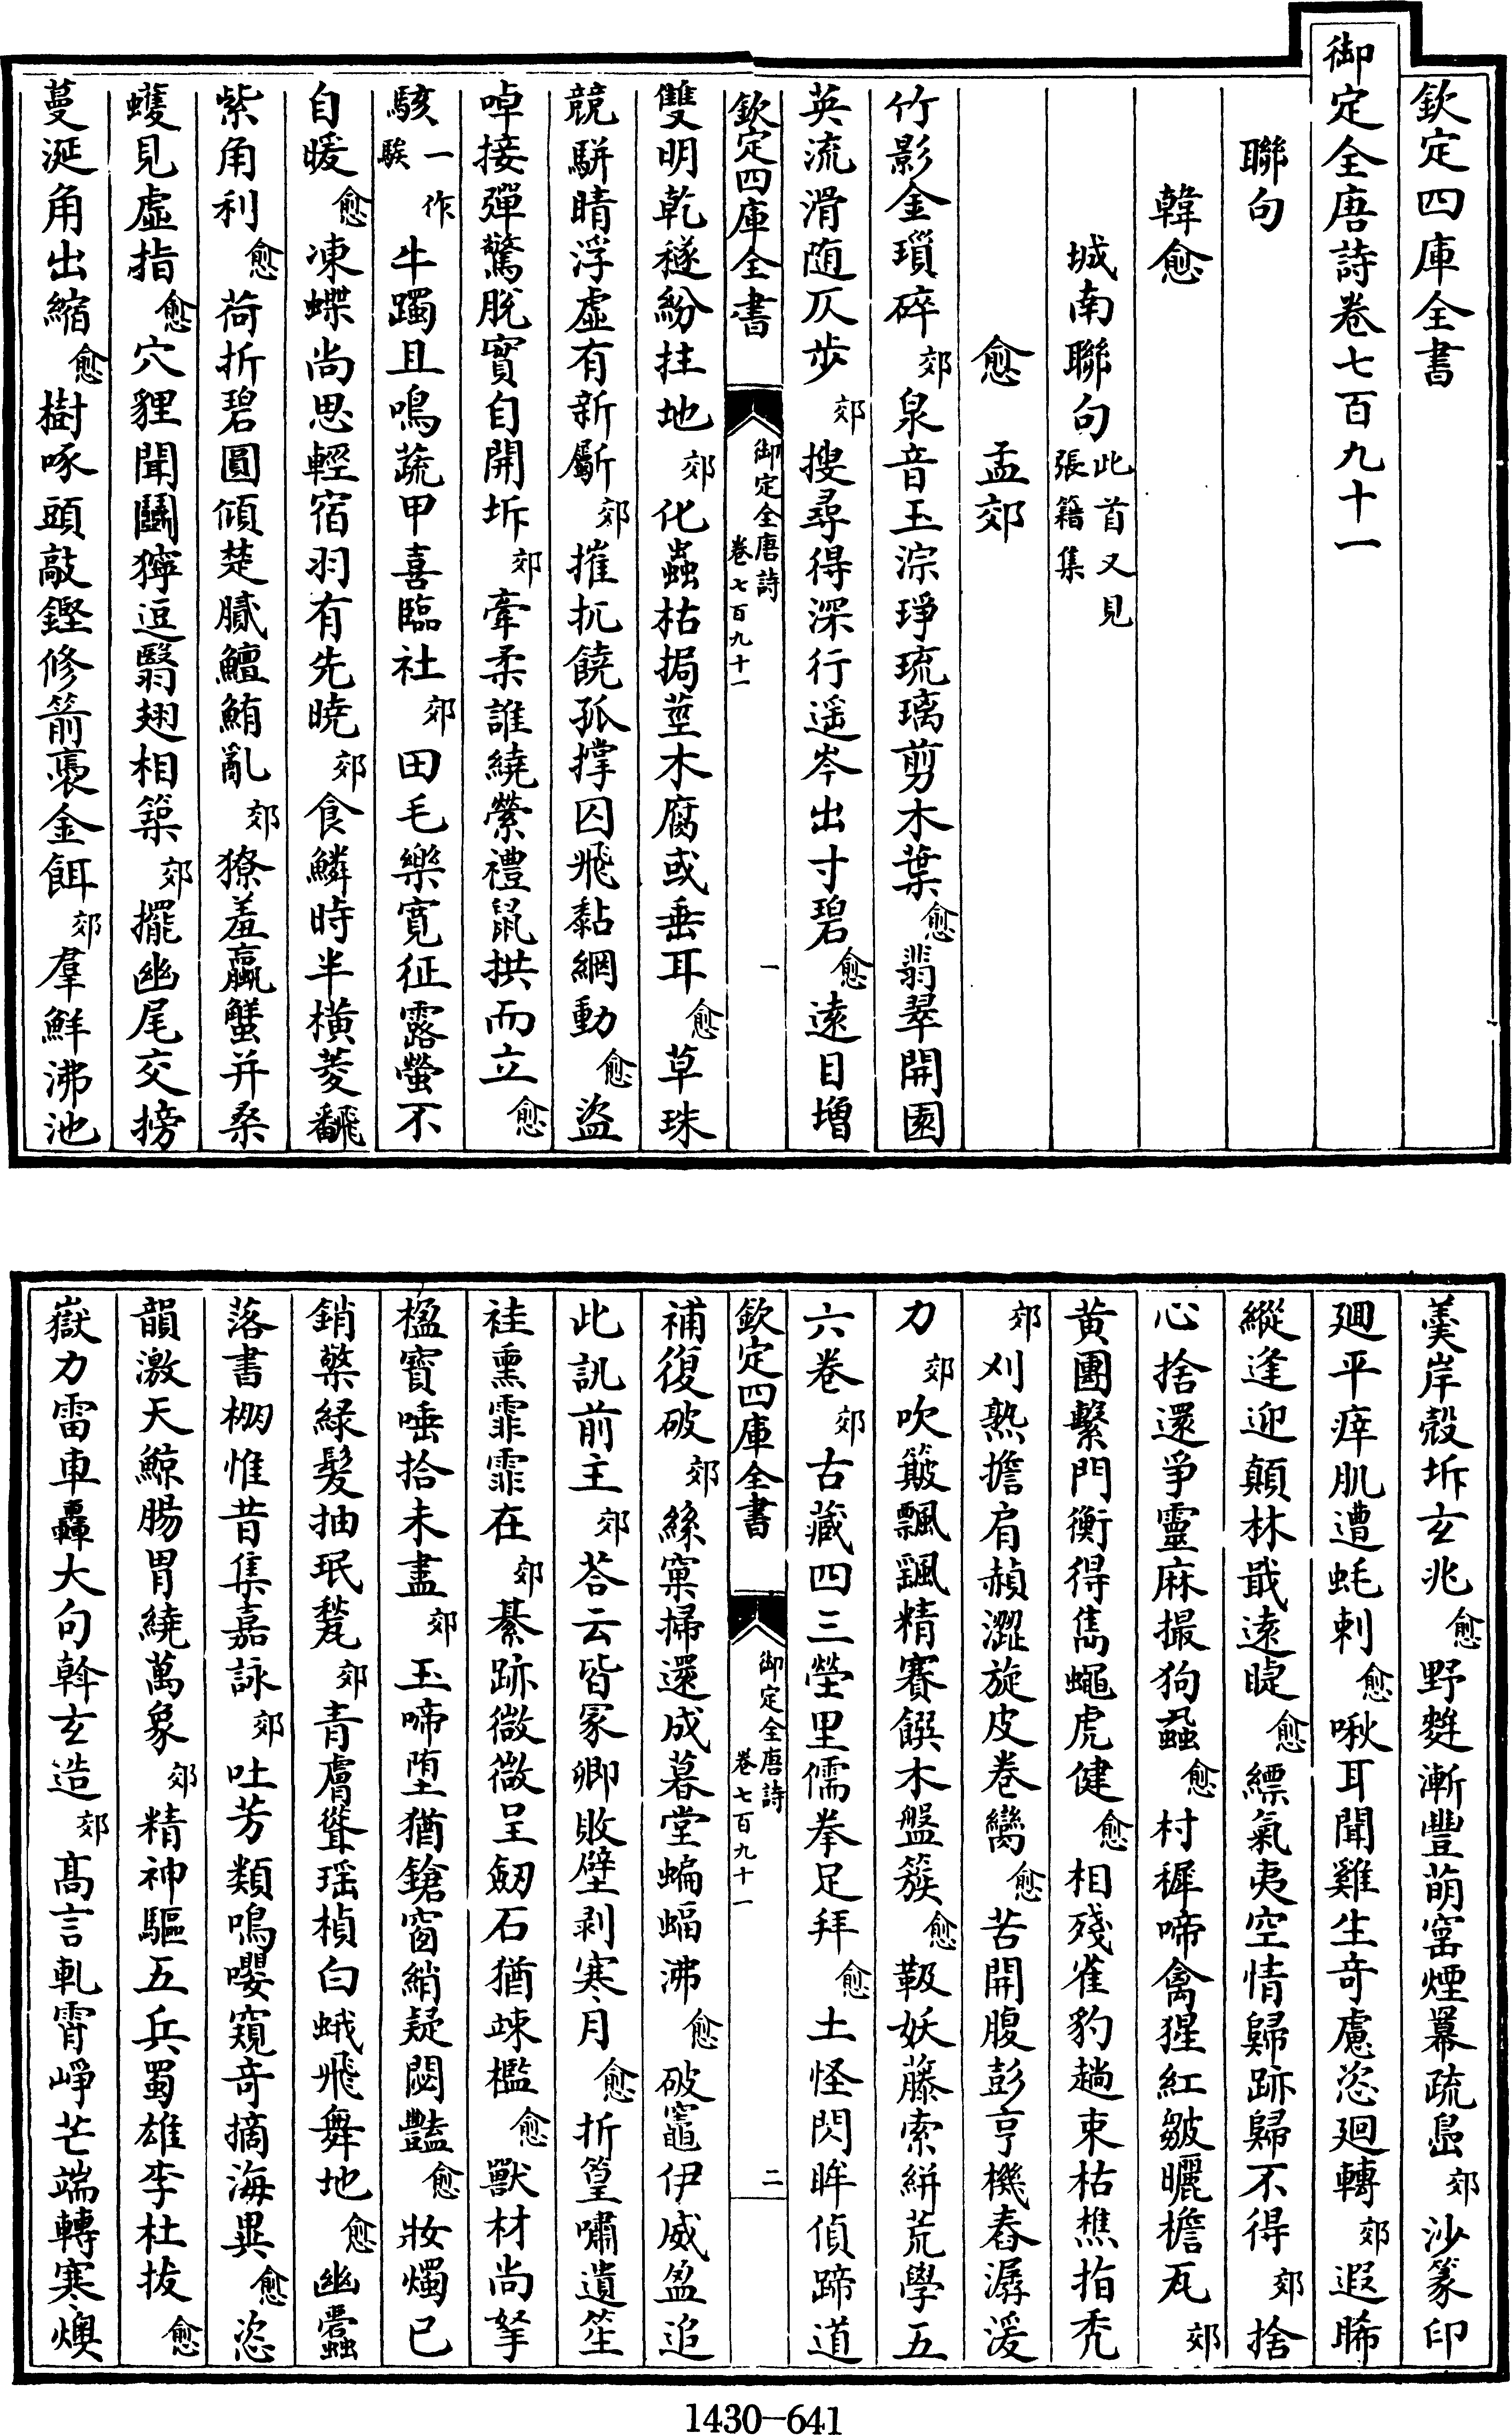 欽定四庫全書
御定全唐詩卷七百九十一
聯句
韓愈
城南聯句此首又見張籍集
愈　孟郊
竹影金瑣碎郊泉音玉淙琤琉璃剪木葉愈翡翠開園
英流滑随仄步郊搜尋得深行遥岑出寸碧愈遠目增
欽定四庫全書　御定全唐詩卷七百九十一　一
雙明乾穟紛拄地郊化蟲枯挶莖木腐或垂耳愈草珠
競駢睛浮虚有新斸郊摧扤饒孤撑囚飛黏網動愈盜
啅接彈驚脫實自開坼郊牽柔誰繞縈禮鼠拱而立愈
駭一作駥牛躅且鳴蔬甲喜臨社郊田毛樂寛征露螢不
自暖愈凍蝶尚思輕宿羽有先曉郊食鱗時半横菱翻
紫角利愈荷折碧圓傾楚膩鱣鮪亂郊獠羞蠃蟹并桑
蠖見虚指愈穴貍聞鬭獰逗翳翅相築郊擺幽尾交搒
蔓涎角出縮愈樹啄頭敲鏗修箭裊金餌郊羣鮮沸池
羹岸殼坼玄兆愈野麰漸豐萌窑煙羃疏島郊沙篆印
迴平痒肌遭蚝刺愈啾耳聞雞生奇慮恣迴轉郊遐睎
縱逢迎顛林戢遠睫愈縹氣夷空情歸跡歸不得郊捨
心捨還爭靈麻撮狗蝨愈村穉啼禽猩紅皺曬檐瓦郊
黄團繫門衡得雋蠅虎健愈相殘雀豹趟束枯樵指秃
郊刈熟擔肩赬澀旋皮卷臠愈苦開腹彭亨機舂潺湲
力郊吹簸飄颻精賽饌木盤簇愈靸妖藤索絣荒學五
六卷郊古藏四三塋里儒拳足拜愈土怪閃眸偵蹄道
欽定四庫全書　御定全唐詩卷七百九十一　二
補復破郊絲窠掃還成暮堂蝙蝠沸愈破竈伊威盈追
此訊前主郊荅云皆冢卿敗壁剥寒月愈折篁嘯遺笙
袿熏霏霏在郊綦跡微微呈劒石猶竦檻愈獸材尚拏
楹寳唾拾未盡郊玉啼堕猶鎗窗綃疑閟豔愈妝燭已
銷檠緑髮抽珉甃郊青膚聳瑶楨白蛾飛舞地愈幽蠹
落書棚惟昔集嘉詠郊吐芳類鳴嚶窺奇摘海異愈恣
韻激天鯨腸胃繞萬象郊精神驅五兵蜀雄李杜拔愈
嶽力雷車轟大句斡玄造郊髙言軋霄崢芒端轉寒燠
1430-641